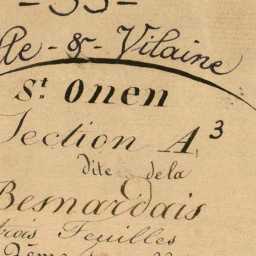 - 35 -
lle - & - Vilaine
St. Onen
Section A, 3
dite de la
Besnardais
trois Feuilles